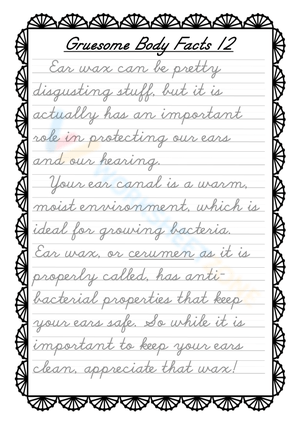 Gruesome Body Facts 12
Ear wax can be pretty
disgusting stuff, but it is
actually has an important
role in protecting our ears
and our hearing.
Your ear canal is a warm,
moist environment, which is
ideal for growing bacteria.
Ear wax, or cerumen as it is
properly called, has anti-
bacterial properties that keep
your ears safe. So while it is
important to keep your ears
clean, appreciate that wax!